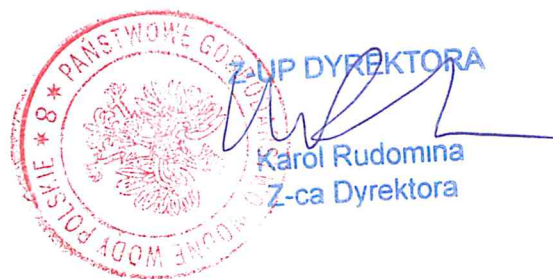 * 8 * PAŃSTWOWE GOSPODARSTWO WODNE WODY POLSKIE
Z-UP DYREKTORA
Karol Rudomina
Z-ca Dyrektora